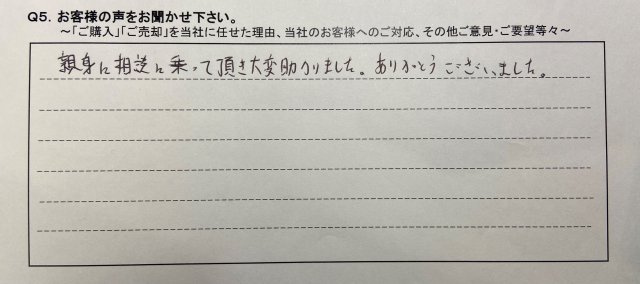 Q5. お客様の声をお聞かせ下さい。
～「ご購入」「ご売却」を当社に任せた理由、当社のお客様へのご対応、その他ご意見・ご要望等々～
親身に相談に乗って頂き大変助かりました。ありがとうございました。